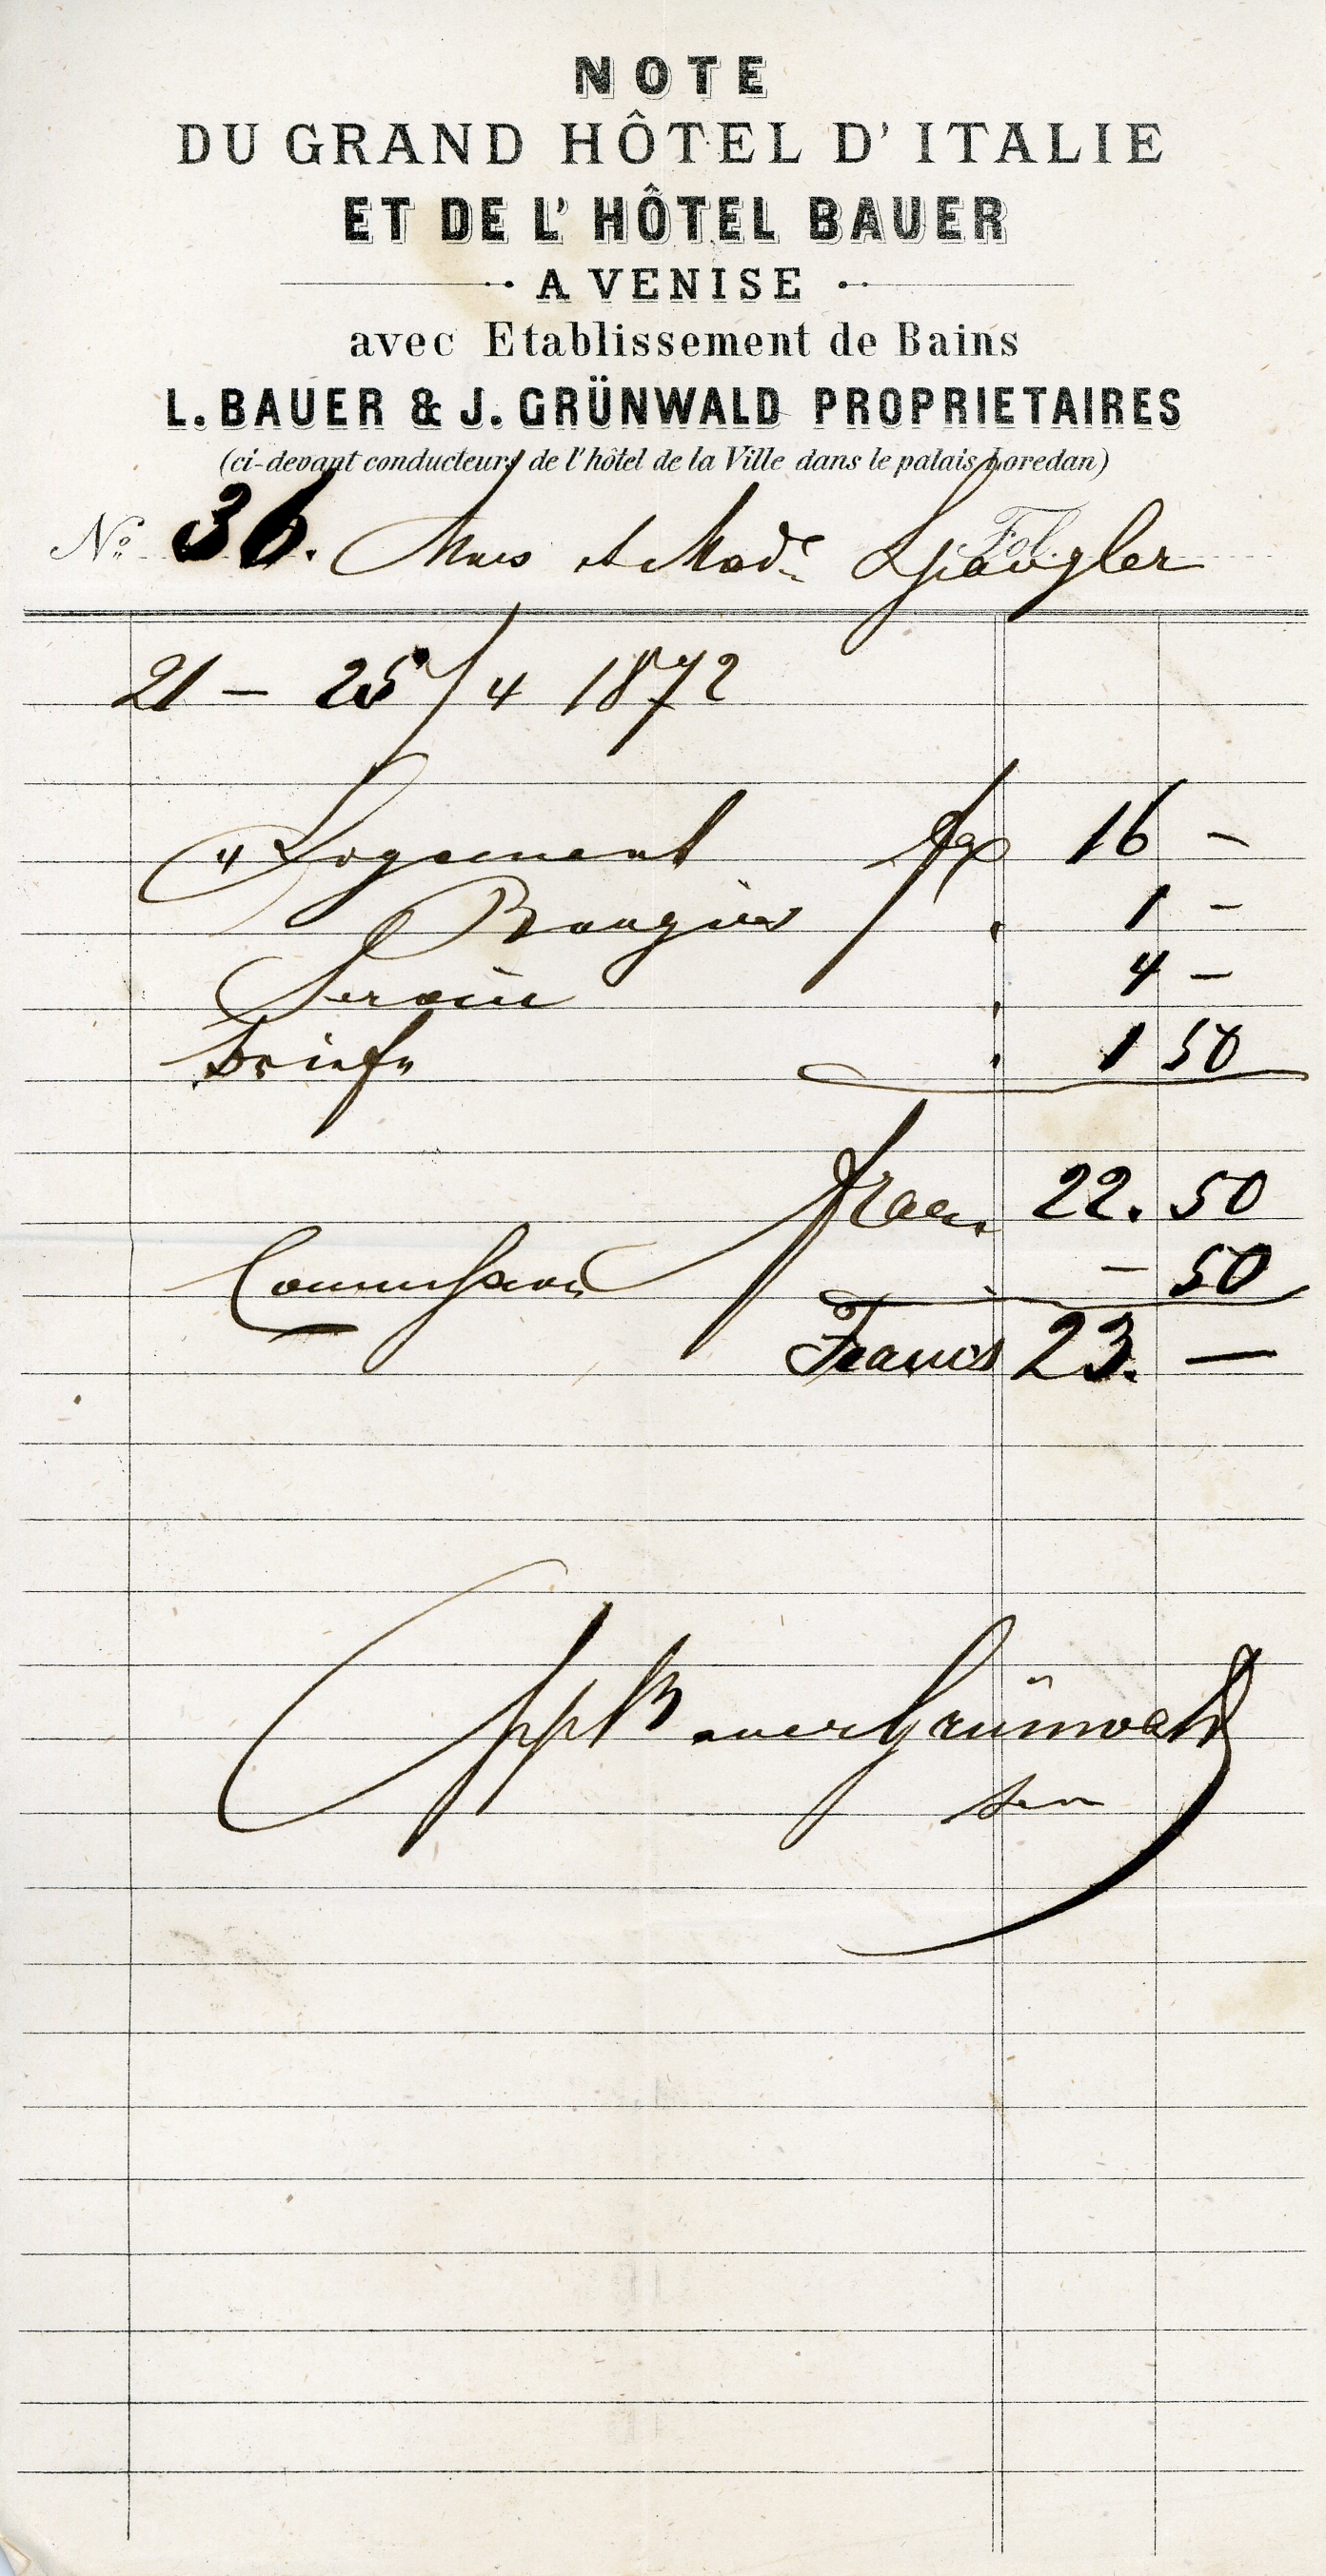 NOTE
DU GRAND HÔTEL D'ITALIE
ET DE L'HÔTEL BAUER
A VENISE
avec Etablissement de Bains
L. BAUER & J. GRÜNWALD PROPRIETAIRES
(ci-devant conducteurs de l'hôtel de la Ville dans le palais Loredan)
No. 36. Mons et Mad.e Spängler Fol.
21 – 25/4 1872
4 Logement fcs 16 –
Bougies " 1 –
Service " 4 –
Briefe " 1 50
francs 22. 50
Commission – 50
Francs 23. —
pp Bauer Grünwald